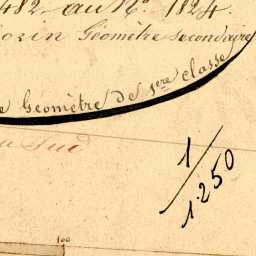 482 au N°. 1824.
Géomètre secondaire
Géomètre de 1ere classe
Sud
1/1250
100